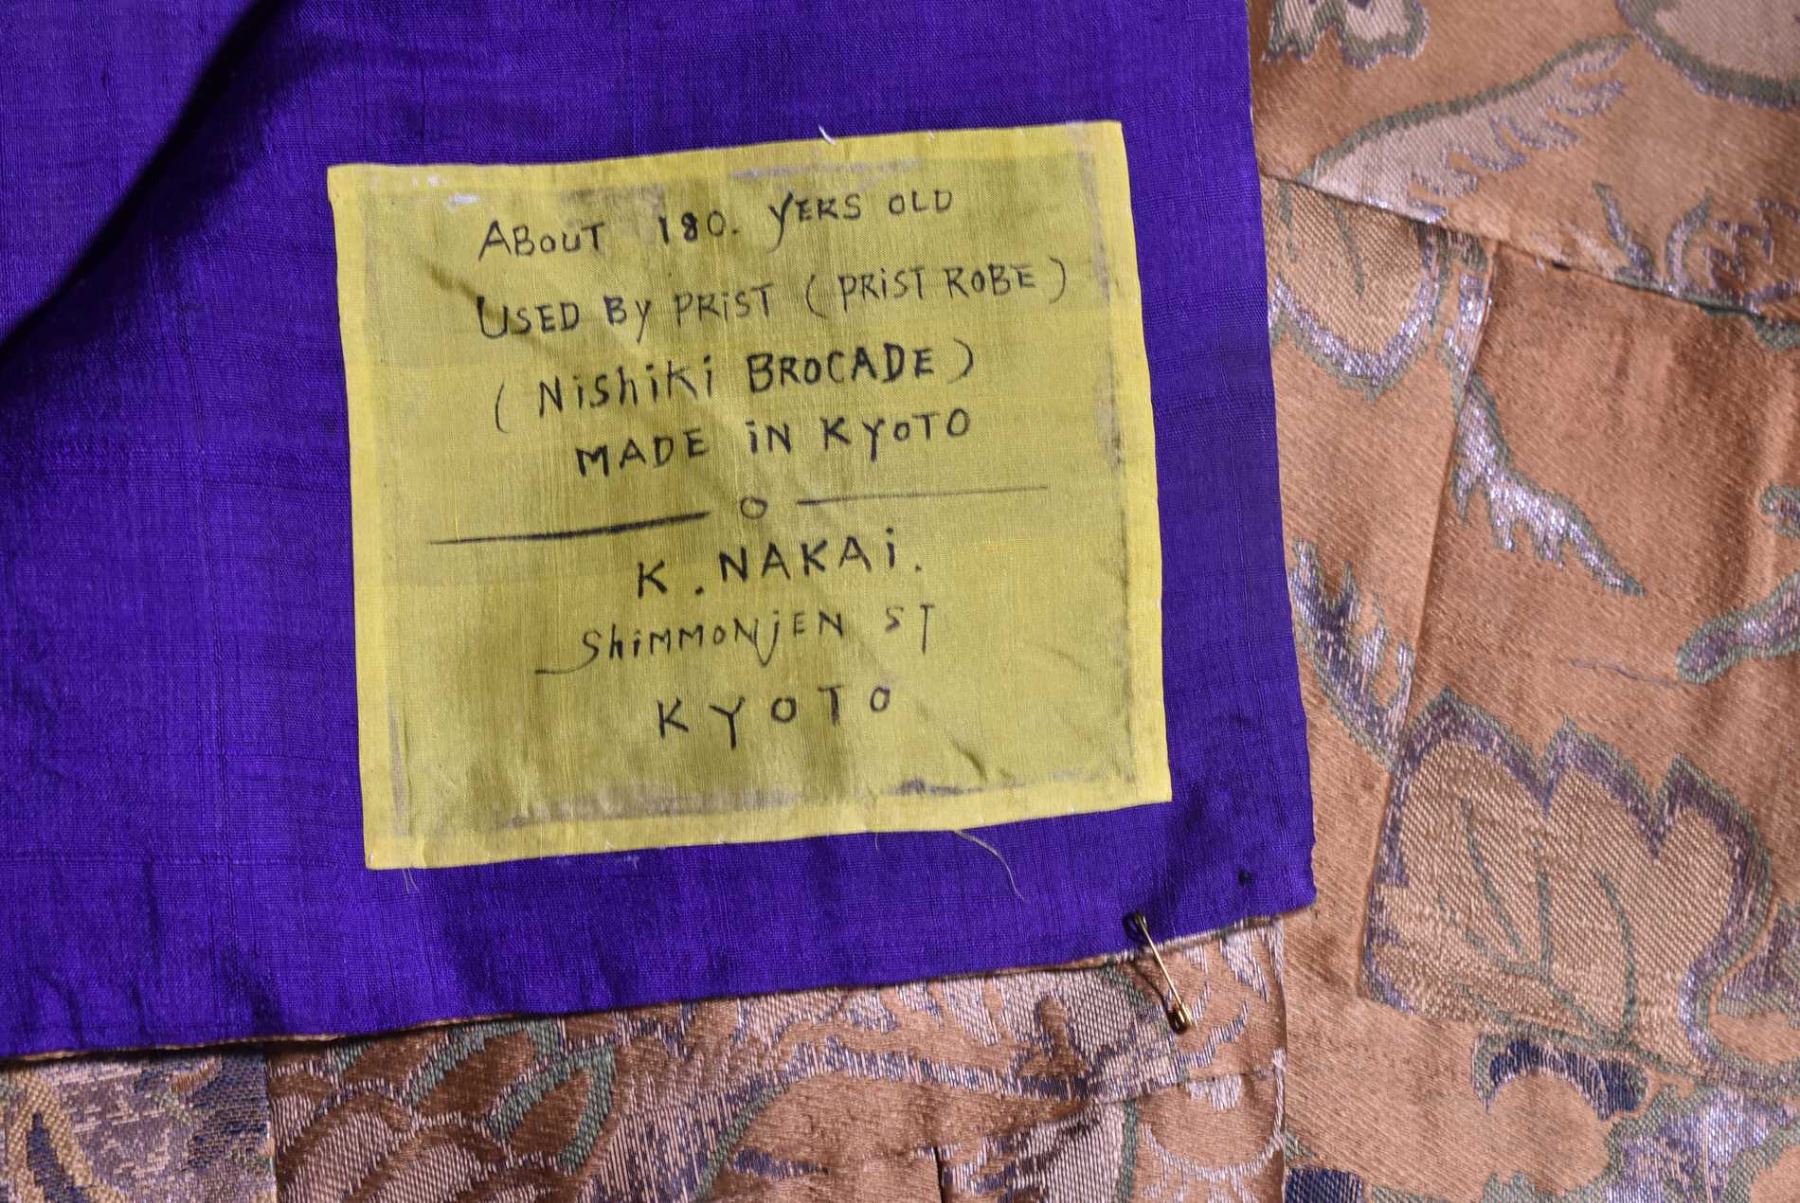 ABOUT 180. YERS OLD
USED BY PRIST (PRIST ROBE)
(NiShiKi BROCADE)
MADE iN KYOTO
— o —
K. NAKAi.
ShiMMONjEN ST
KYOTO